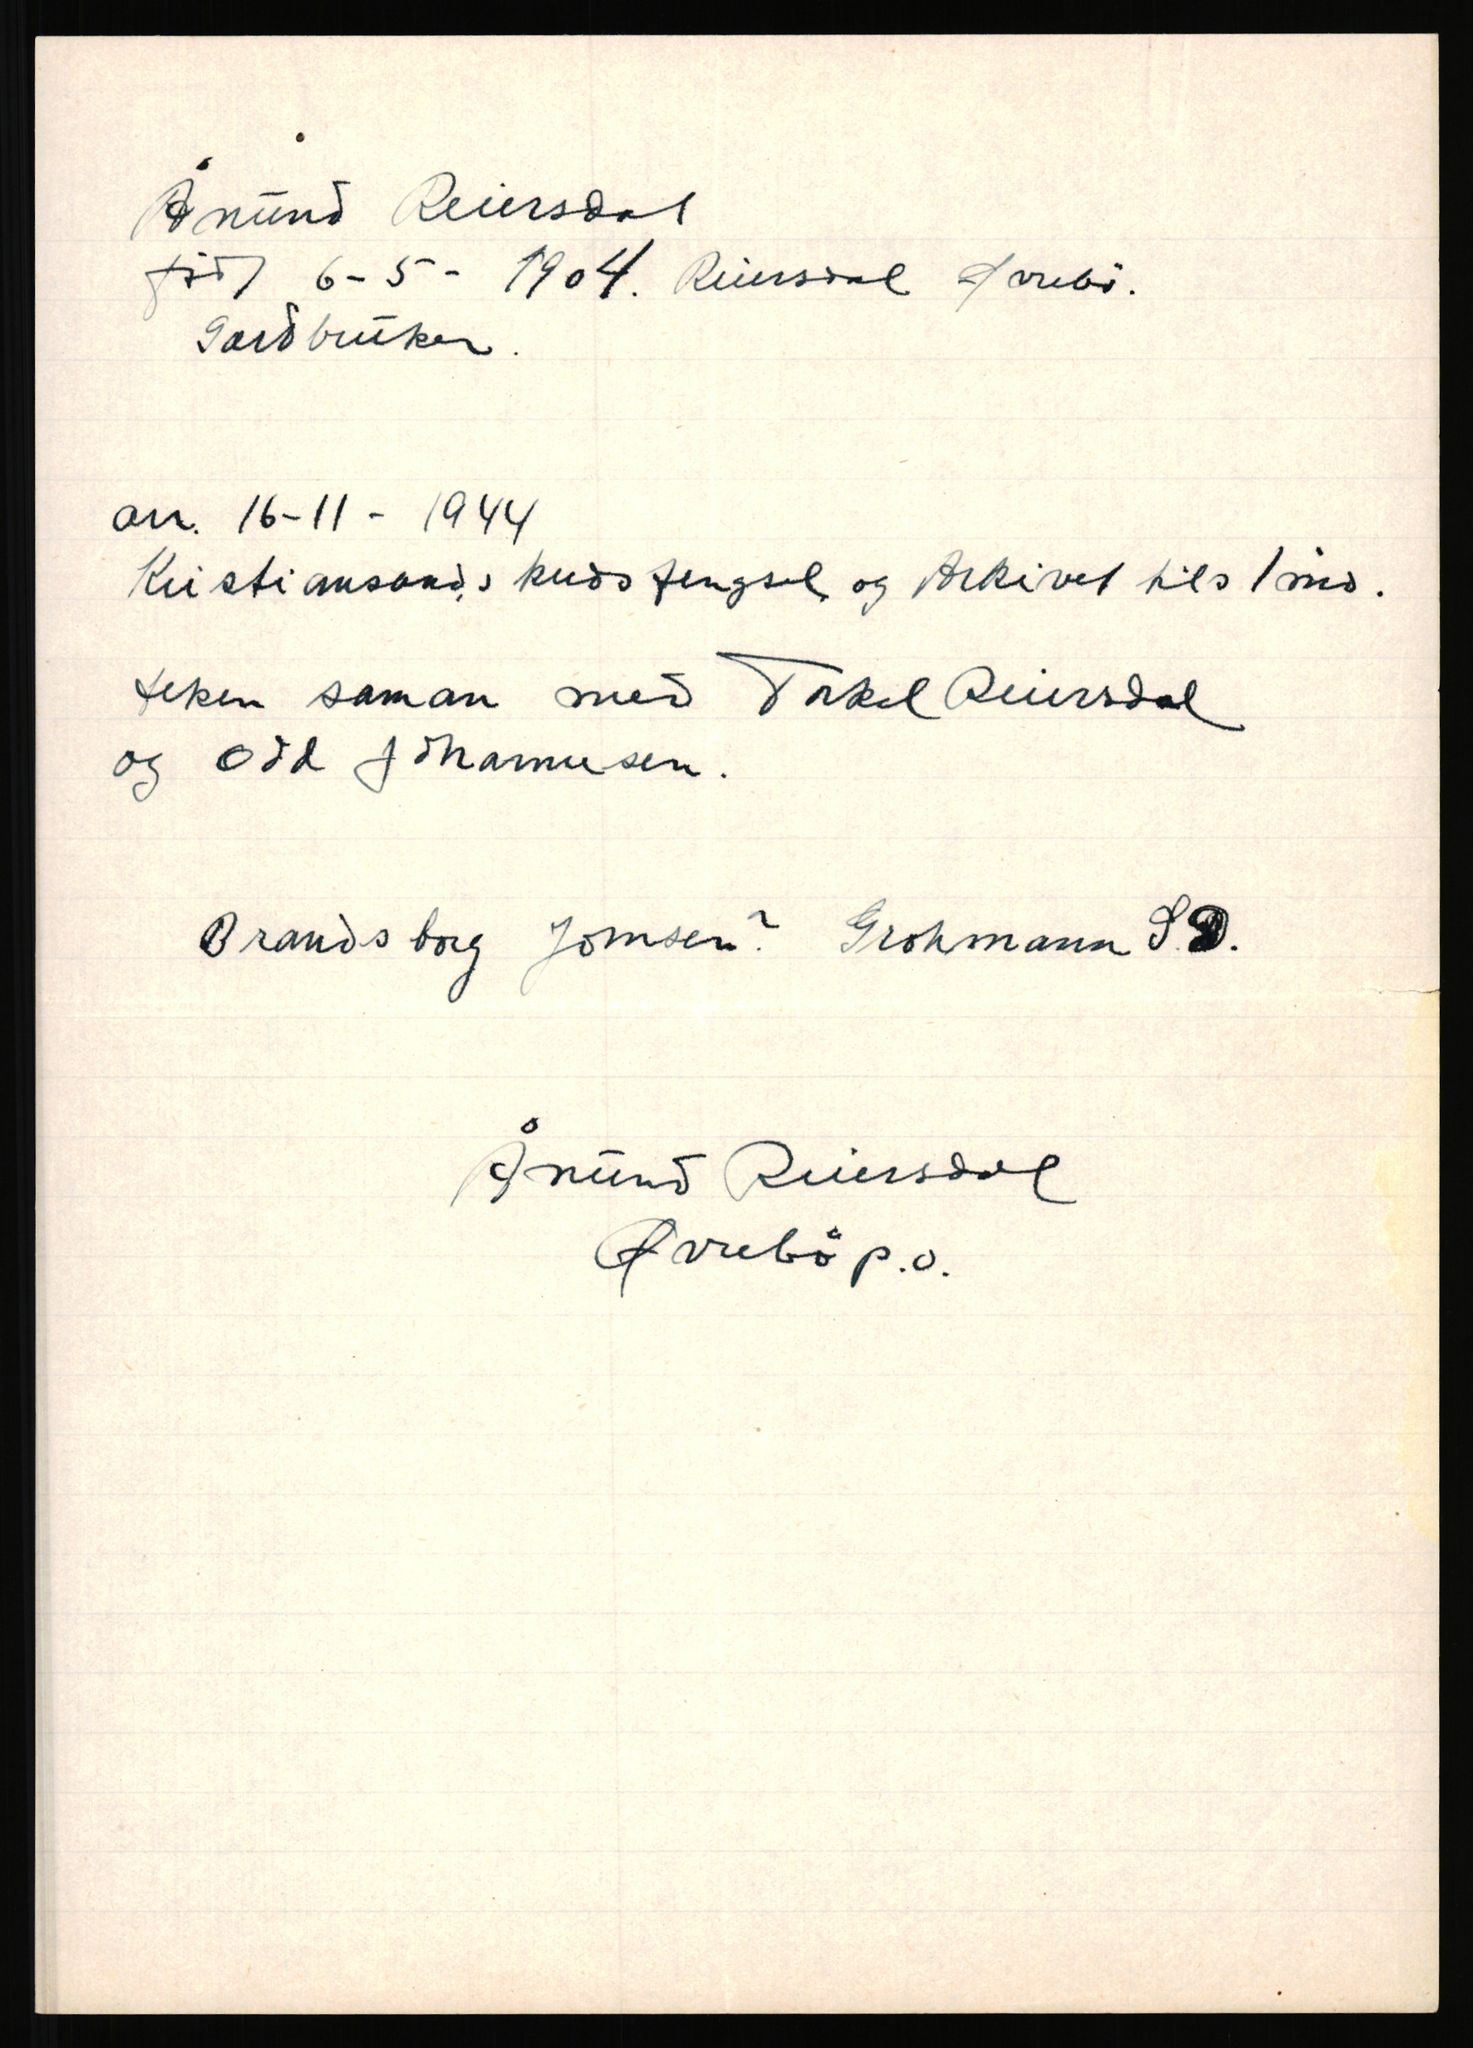 Ånund Reiersdal
född 6-5-1904. Reiersdal Øvrebö.
Gardbruker.
arr. 16-11-1944
Kristiansands kretsfengsel og Arkivet tils 1 mnd.
teken saman med Torkel Reiersdal
og Odd Johannesen.
Brandsborg Jomsen? Grohmann S.D.
Ånund Reiersdal
Øvrebö p.o.